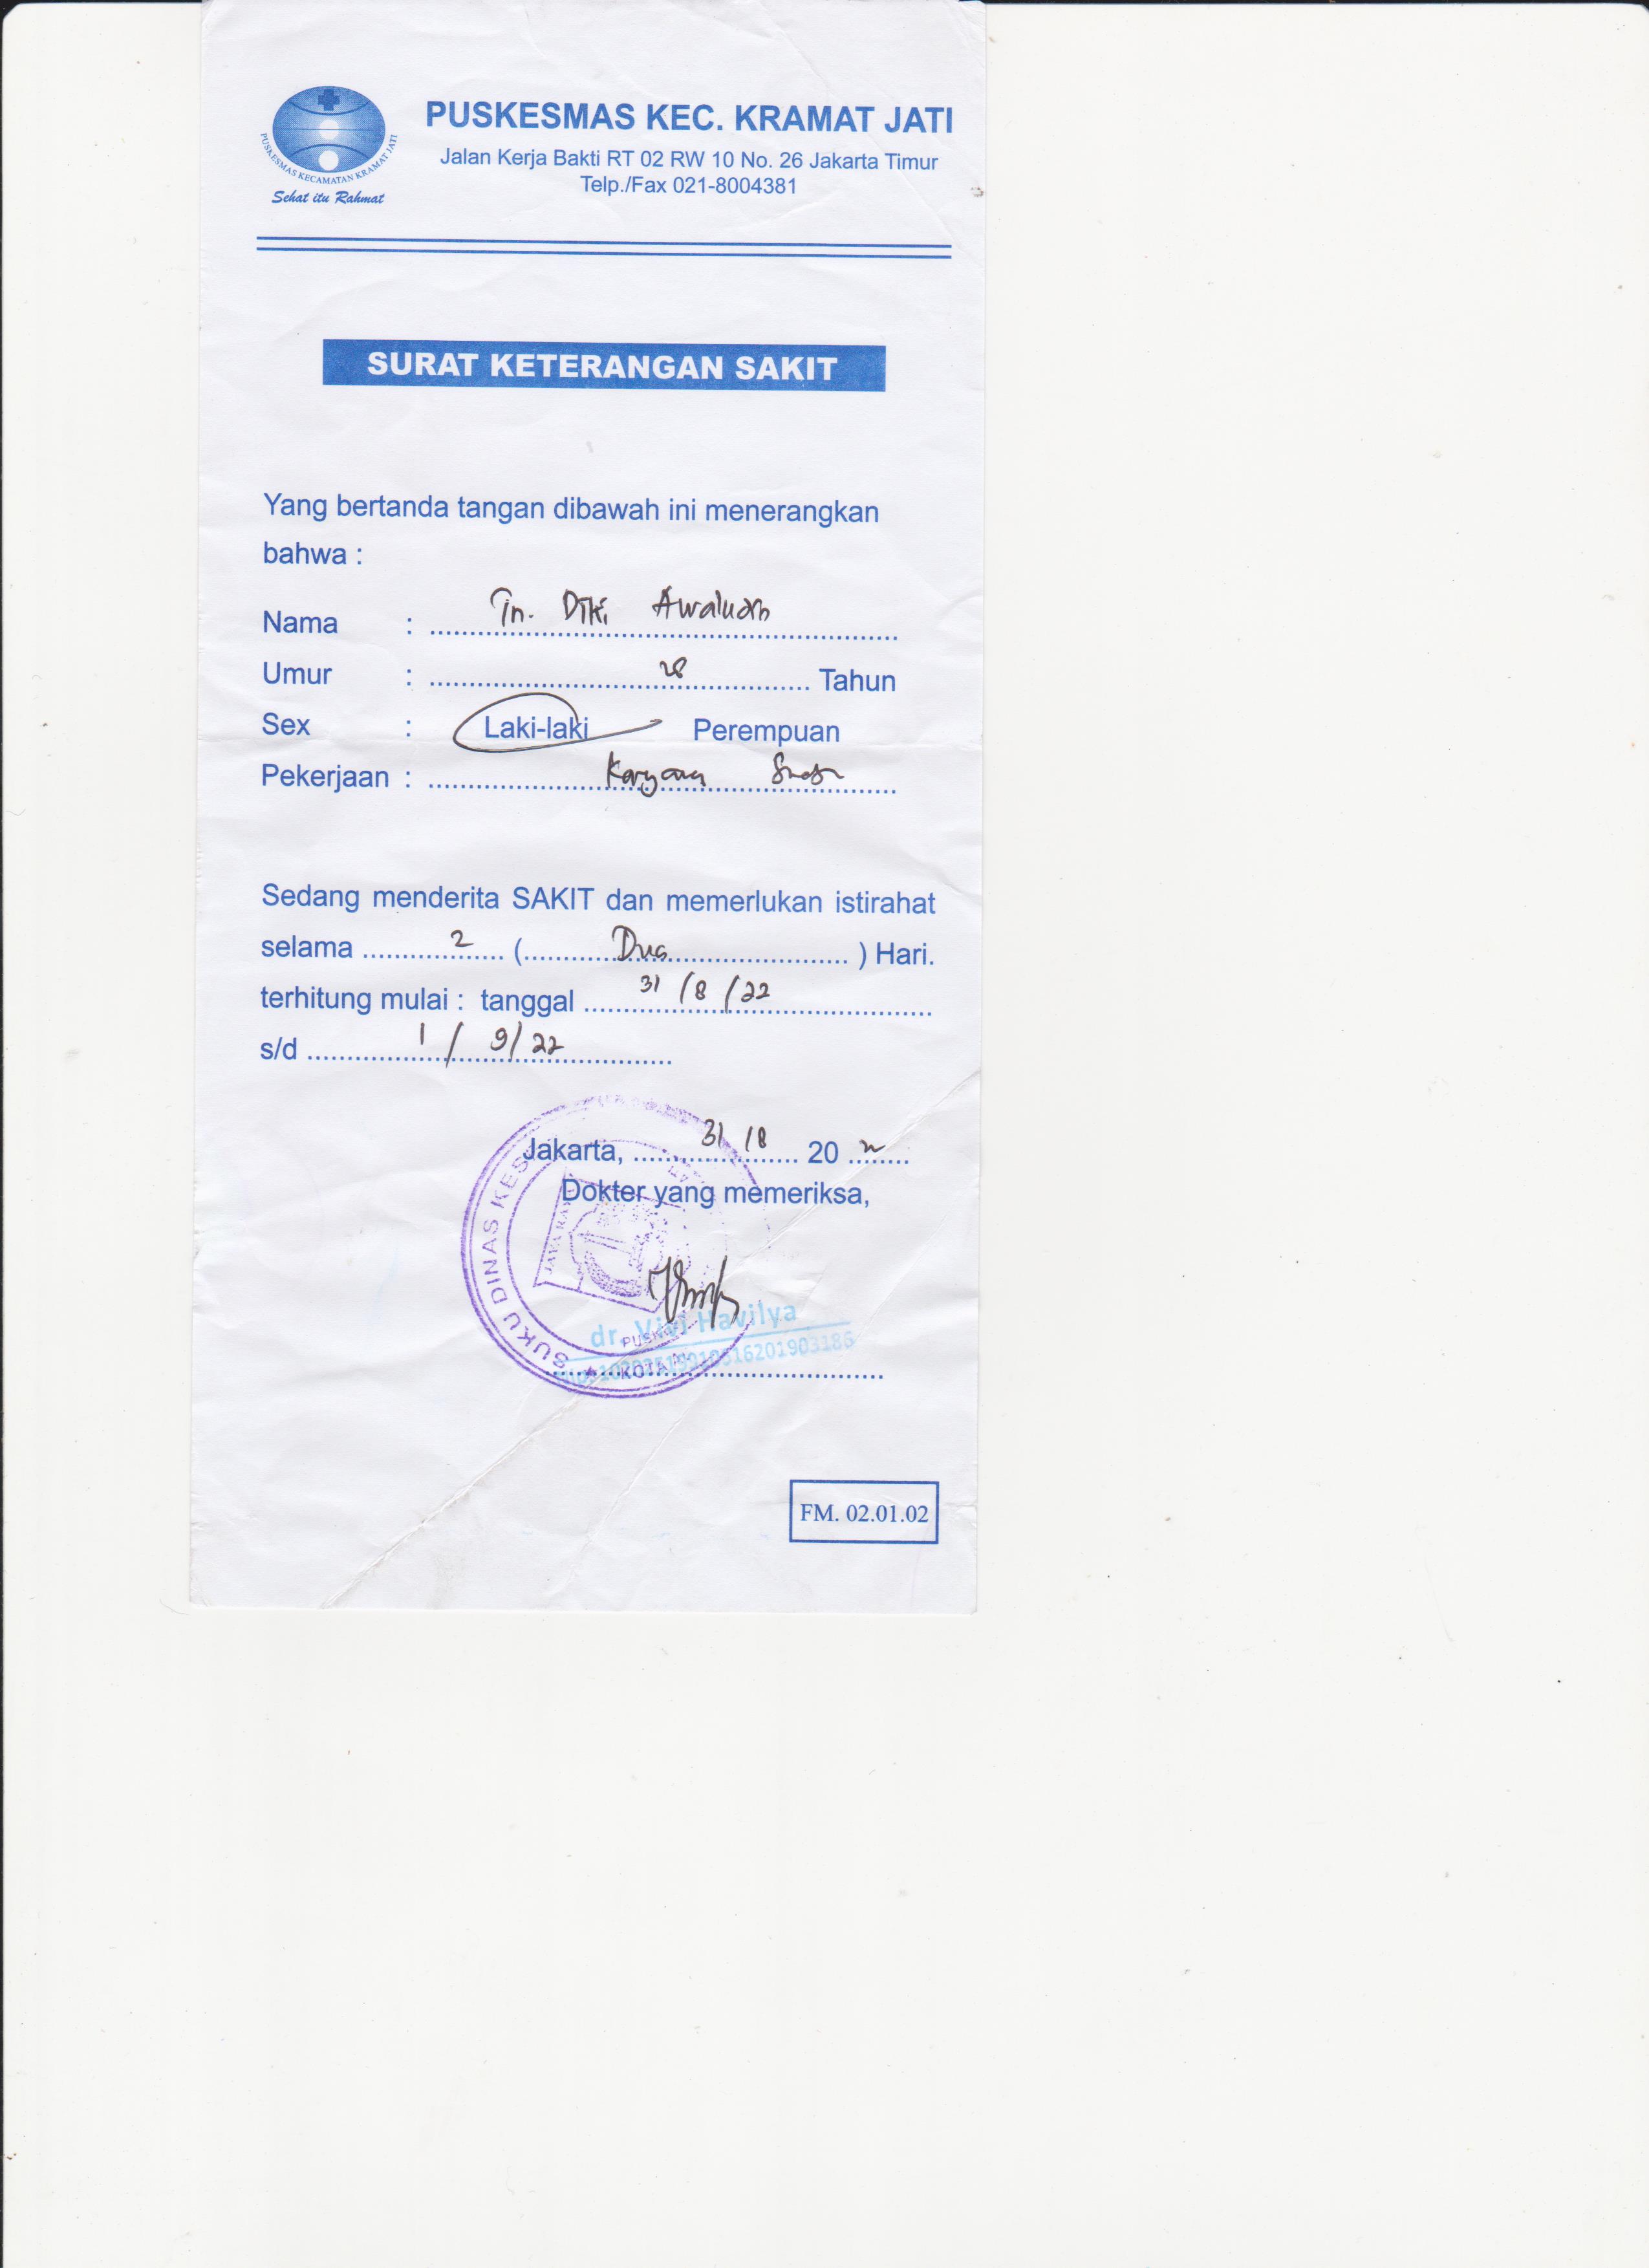 PUSKESMAS KECAMATAN KRAMAT JATI
Sehat itu Rahmat
PUSKESMAS KEC. KRAMAT JATI
Jalan Kerja Bakti RT 02 RW 10 No. 26 Jakarta Timur
Telp./Fax 021-8004381
SURAT KETERANGAN SAKIT
Yang bertanda tangan dibawah ini menerangkan
bahwa :
Nama : Tn. Diki
Umur : 28 Tahun
Sex : Laki-laki Perempuan
Pekerjaan :
Sedang menderita SAKIT dan memerlukan istirahat
selama 2 ( Dua ) Hari.
terhitung mulai : tanggal 31/8/22
s/d 1/9/22
Jakarta, 31/8 20
Dokter yang memeriksa,
SUKU DINAS
JAYA RAYA
dr. Vivi Havilya
KOTA
FM. 02.01.02